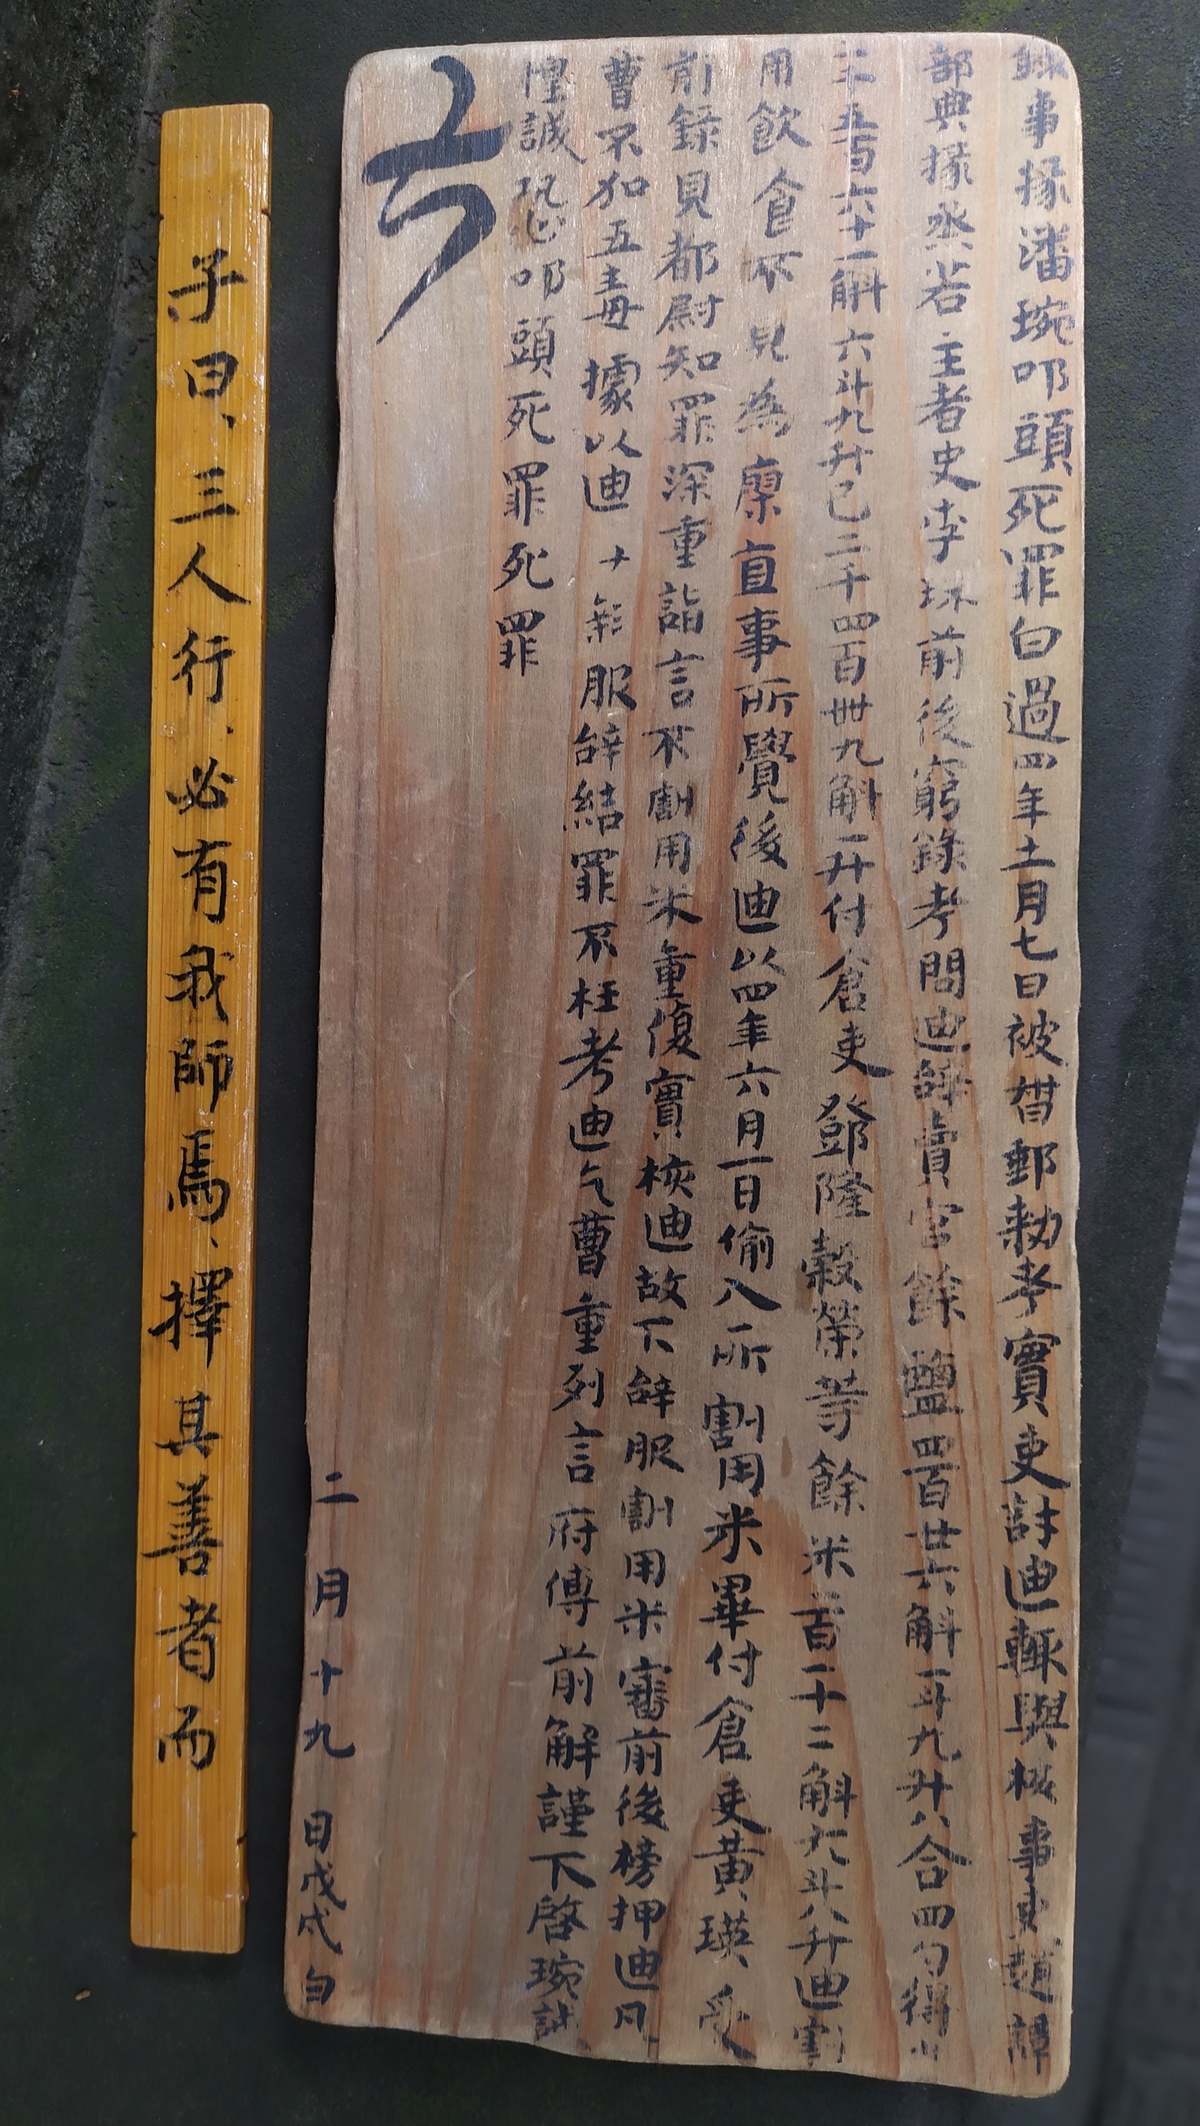 錄事掾潘琬叩頭死罪白過四年十一月七日被督郵勑考實吏許迪輒與核事吏趙譚
部典掾烝若主者史李珠前後窮錄考問迪辭賣官餘鹽四百廿六斛一斗九升八合四勺得米
二千五百六十一斛六斗九升已二千四百卌九斛一升付倉吏鄧隆穀榮等餘米一百一十二斛六斗八升迪割
用飲食不見為廖直事所覺後迪以四年六月一日偷入所割用米畢付倉吏黃瑛受
前錄見都尉知罪深重詣言不割用米重復實核迪故下辭服割用米審前後榜押迪凡
曹不加五毒據以迪服辭結罪不枉考迪乞曹重列言府傅前解謹下啓琬誠
惶誠恐叩頭死罪死罪
二月十九日戊戌白
子曰、三人行、必有我師焉、擇其善者而